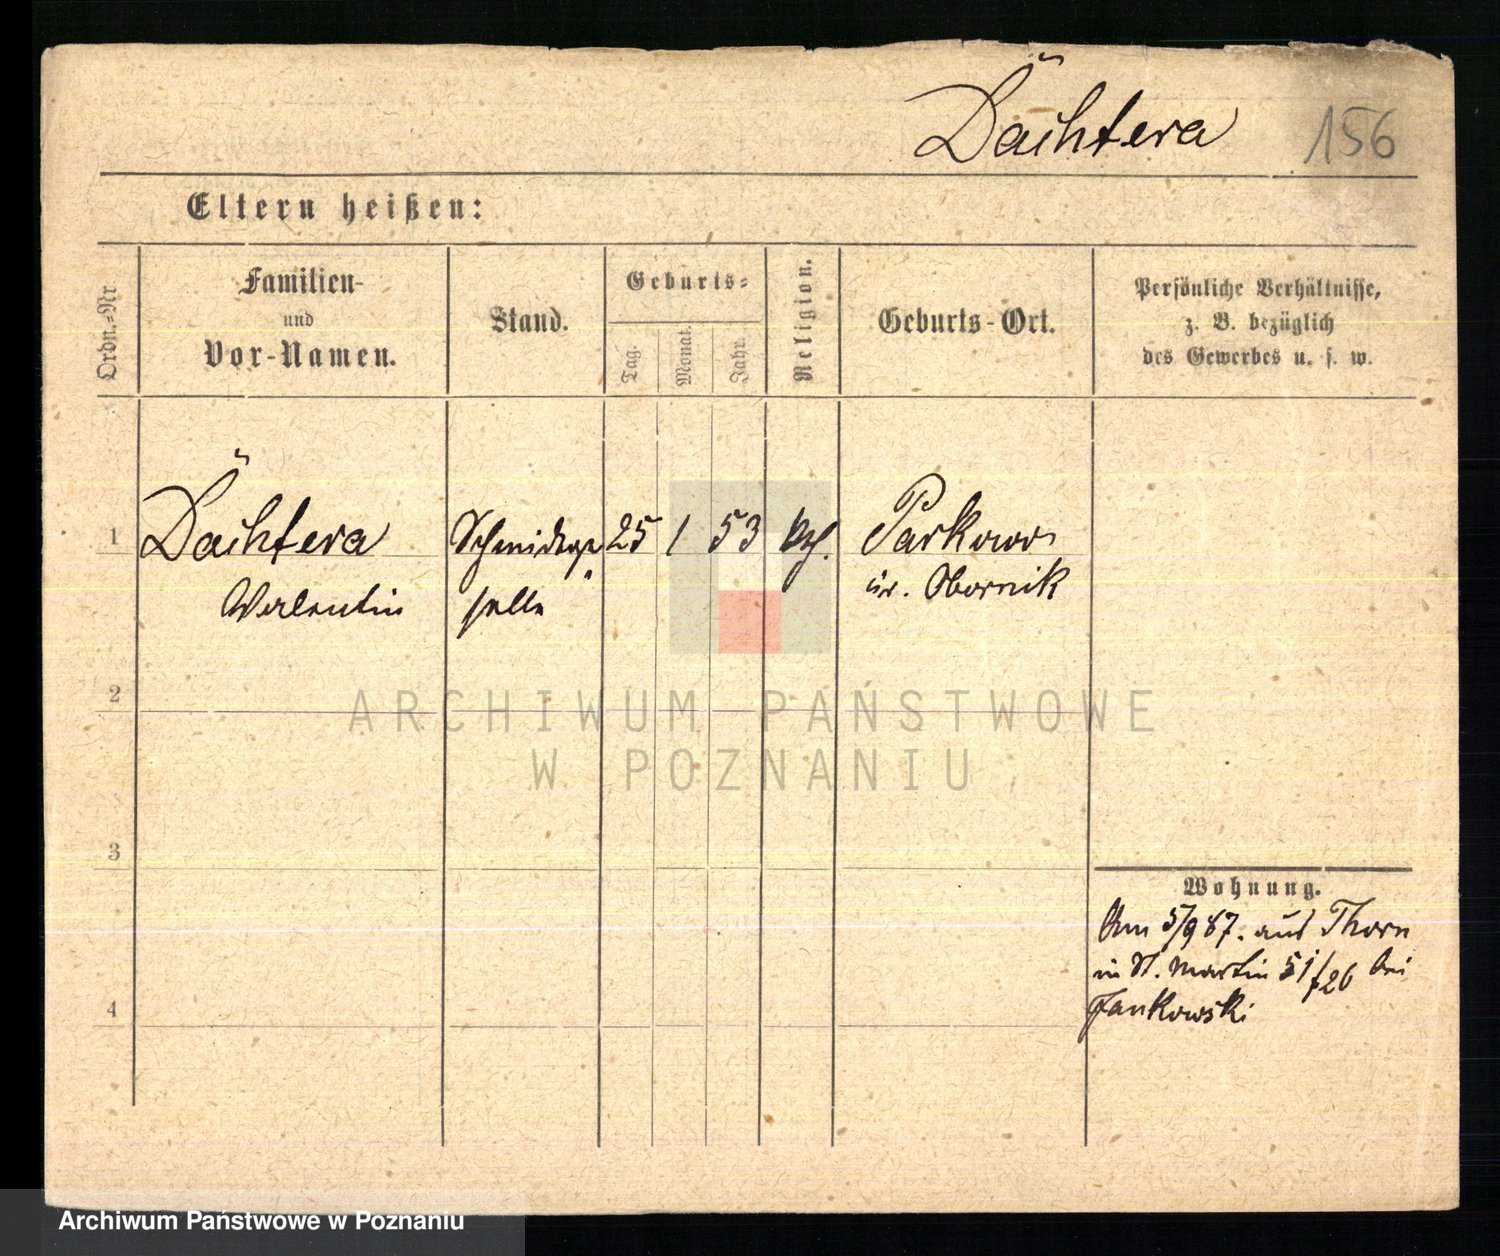 Dächtera 156
Eltern heißen:
Ordn.-Nr
Familien-
und
Vor-Namen.
Stand.
Geburts-
Tag.
Monat.
Jahr.
Religion.
Geburts-Ort.
Persönliche Verhältnisse,
z. B. bezüglich
des Gewerbes u. s. w.
1 Dächtera Schmidege 25 1 53 kth. Parkowo
Valentin selle Obornik
2
3
4
Wohnung.
Am 5/9 87. aus Thorn
in St. Martin 51/26 bei
Jankowski
ARCHIWUM PAŃSTWOWE
W POZNANIU
Archiwum Państwowe w Poznaniu